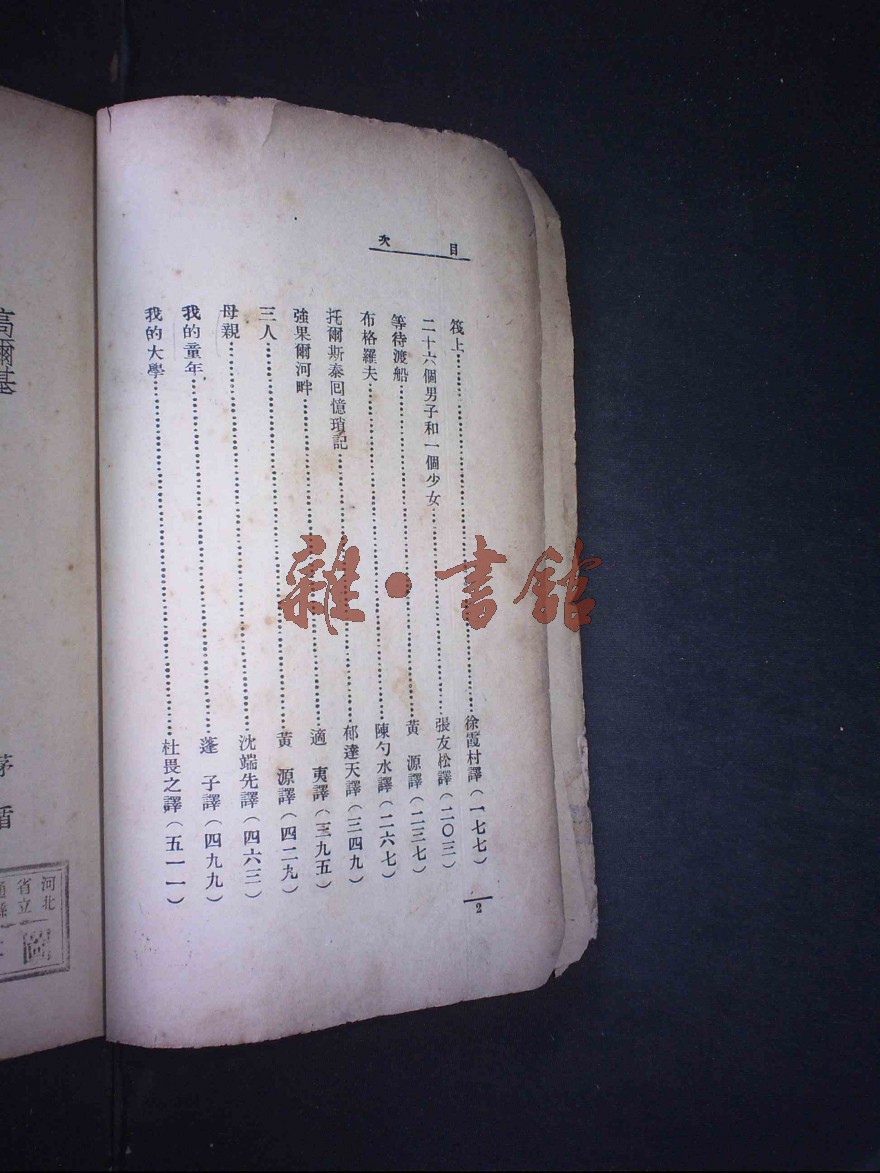 目次
筏上……徐霞村譯（一七七）
二十六個男子和一個少女……張友松譯（二〇三）
等待渡船……黃源譯（二三七）
布格羅夫……陳勺水譯（二六七）
托爾斯泰回憶瑣記……郁達天譯（三四九）
強果爾河畔……適夷譯（三九五）
三人……黃源譯（四二九）
母親……沈端先譯（四六三）
我的童年……蓬子譯（四九九）
我的大學……杜畏之譯（五一一）
2
高爾基
茅盾
河北
省立
通縣
圖
雜·書館